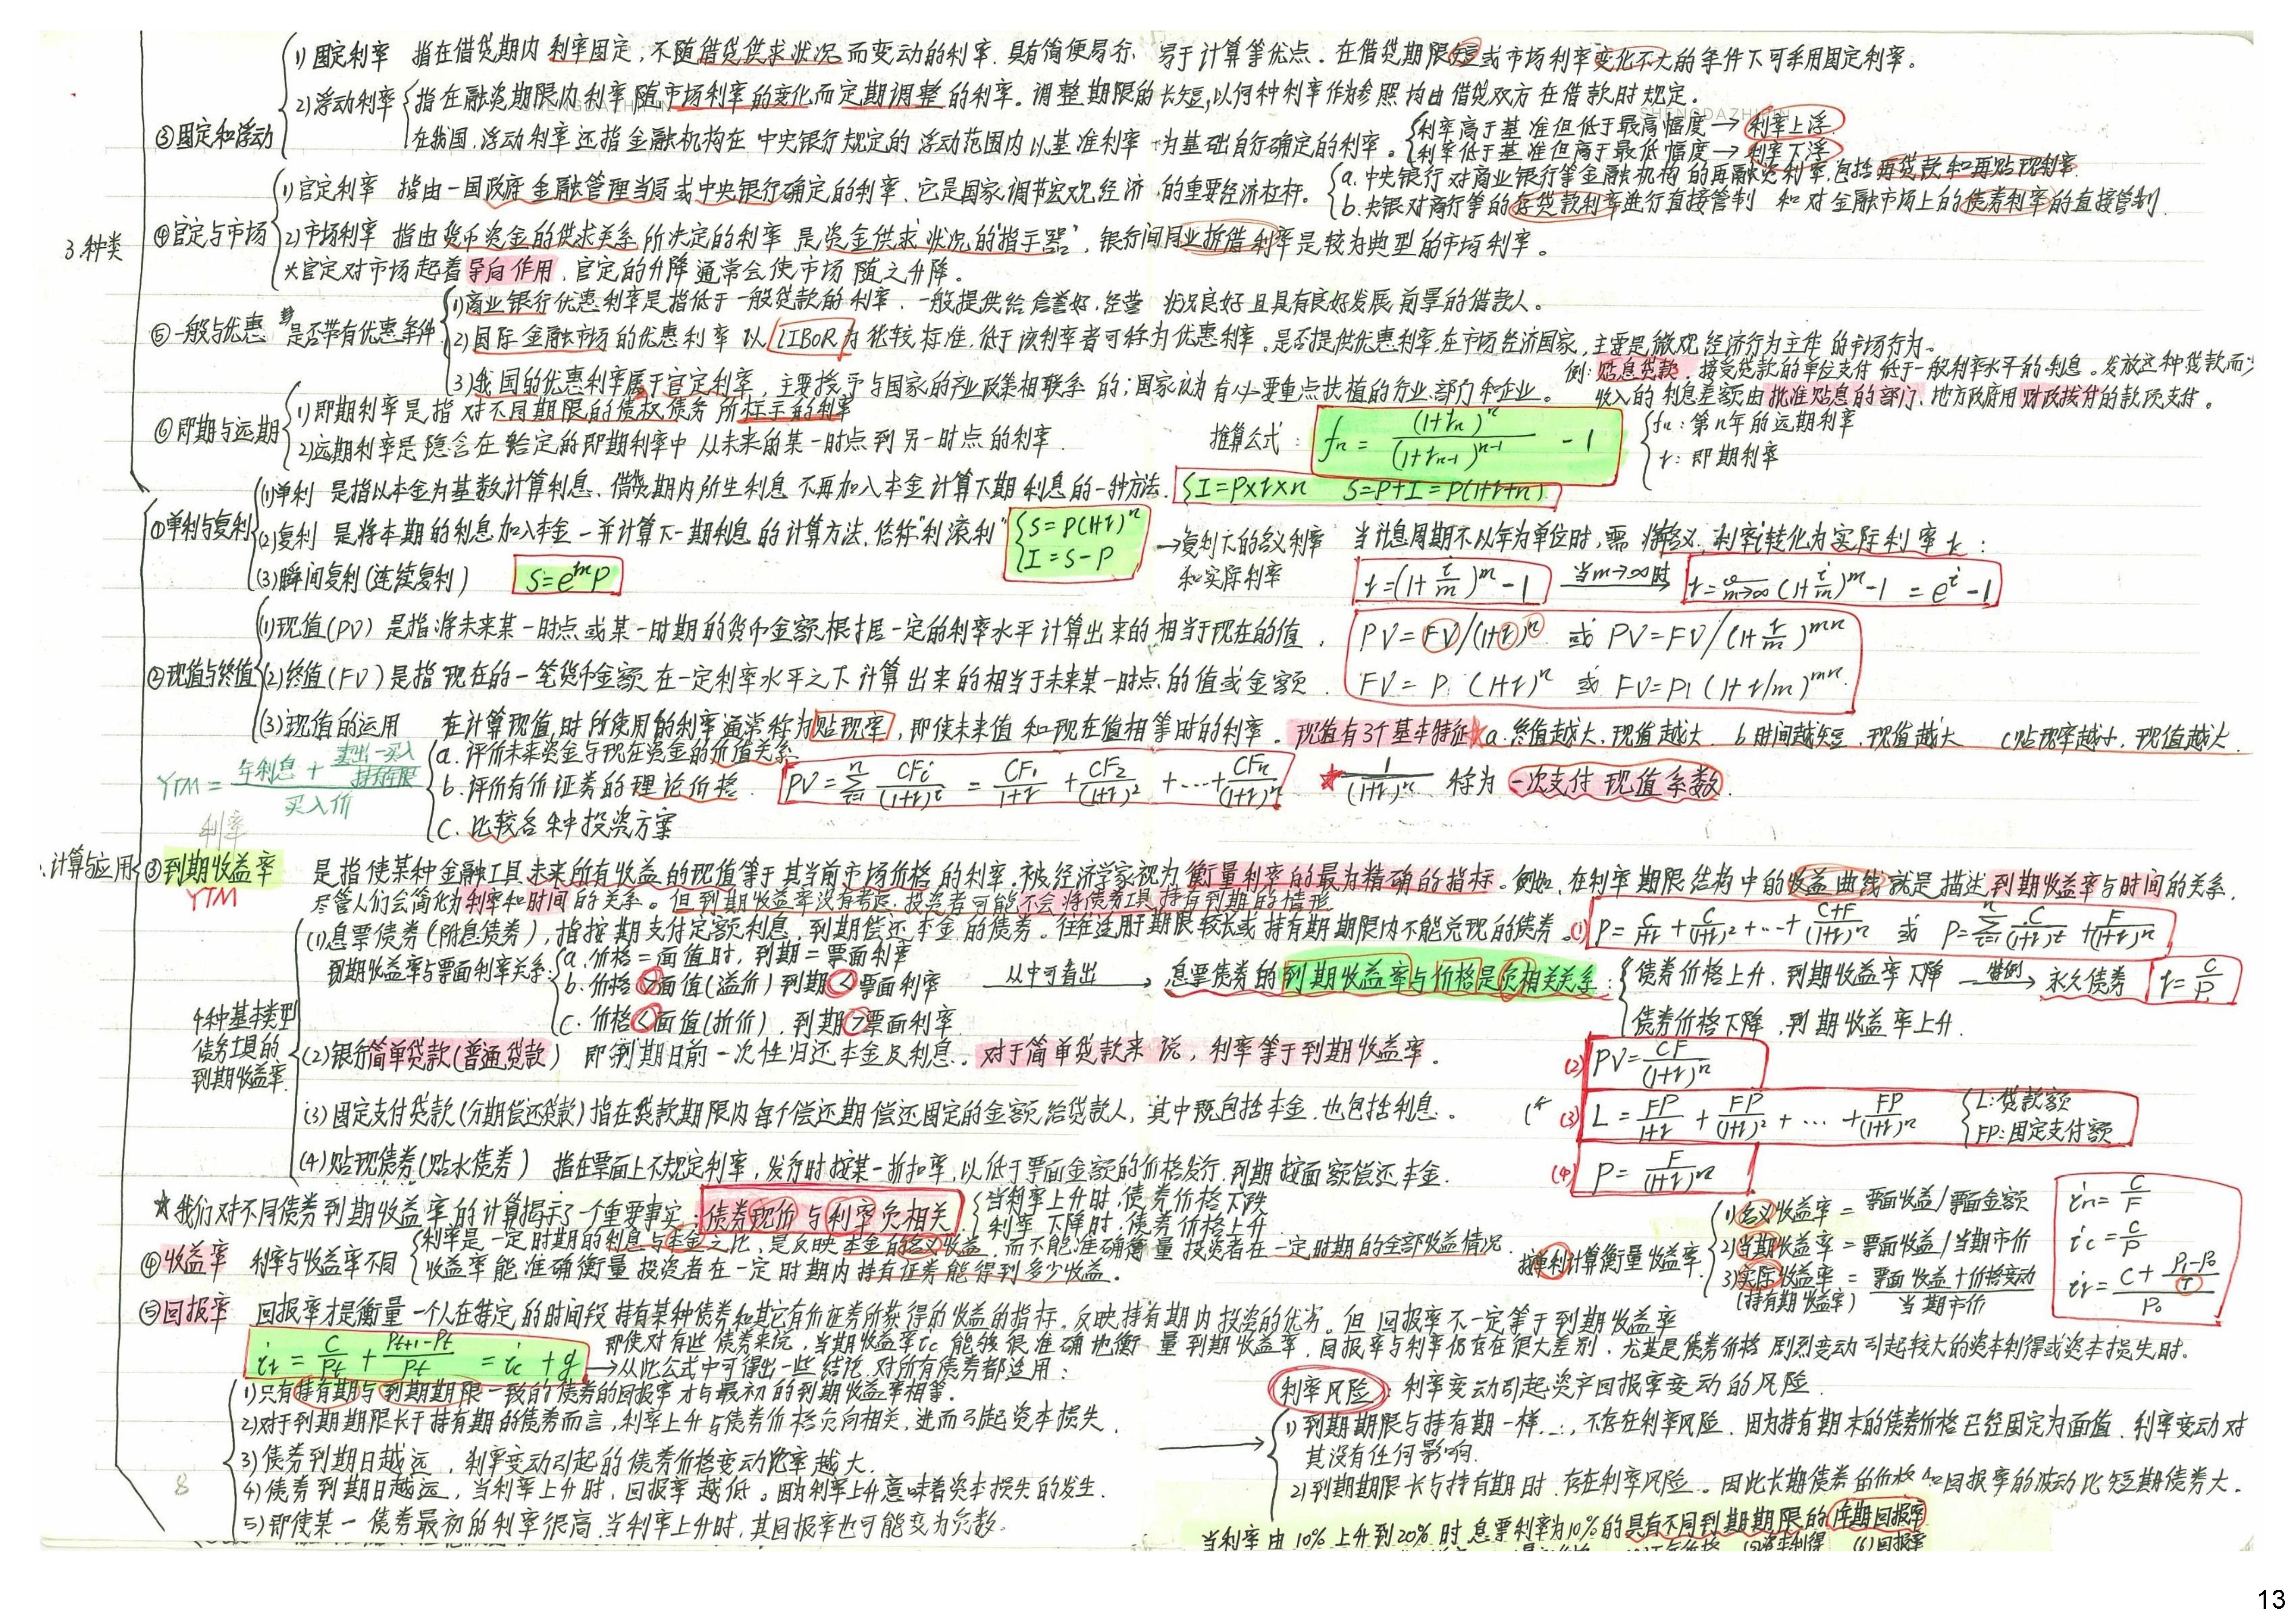 3.种类
③固定和浮动
1)固定利率 指在借贷期内利率固定,不随借贷供求状况而变动的利率.具有简便易行、易于计算等优点。在借贷期限短或市场利率变化不大的条件下可采用固定利率。
2)浮动利率 指在融资期限内利率随市场利率的变化而定期调整的利率。调整期限的长短,以何种利率作为参照均由借贷双方在借款时规定。
在我国,浮动利率还指金融机构在中央银行规定的浮动范围内以基准利率为基础自行确定的利率。
利率高于基准但低于最高幅度→利率上浮
利率低于基准但高于最低幅度→利率下浮
④官定与市场
1)官定利率 指由一国政府金融管理当局或中央银行确定的利率.它是国家调节宏观经济的重要经济杠杆。
a.中央银行对商业银行等金融机构的再融资利率,包括再贷款和再贴现利率.
b.央银对商行等的存贷款利率进行直接管制 和对金融市场上的债券利率的直接管制.
2)市场利率 指由货币资金的供求关系所决定的利率 是资金供求状况的“指示器”,银行间同业拆借利率是较为典型的市场利率。
大官定对市场起着导向作用,官定的升降通常会使市场随之升降。
⑤一般与优惠 是否带有优惠条件
1)商业银行优惠利率是指低于一般贷款的利率.一般提供给信誉好.经营状况良好且具有良好发展前景的借款人。
2)国际金融市场的优惠利率以LIBOR为比较标准,低于该利率者可称为优惠利率。是否提供优惠利率,在市场经济国家,主要是微观经济行为主体的市场行为。
(3)我国的优惠利率属于官定利率,主要授予与国家的产业政策相联系的;国家认为有必要重点扶植的行业、部门和企业。
例:贴息贷款,接受贷款的单位支付低于一般利率水平的利息。发放这种贷款而少
收入的利息差额由批准贴息的部门、地方政府用财政拨付的款项支付。
⑥即期与远期
1)即期利率是指对不同期限的债权债务所标示的利率
2)远期利率是隐含在给定的即期利率中从未来的某一时点到另一时点的利率.
推算公式: fn = (1+rn)^n / (1+rn-1)^(n-1) - 1
fn:第n年的远期利率
r:即期利率
计算与应用
①单利与复利
(1)单利 是指以本金为基数计算利息.借贷期内所生利息不再加入本金计算下期利息的一种方法. I=P×r×n S=P+I=P(1+r+n)
(2)复利 是将本期的利息加入本金一并计算下一期利息的计算方法.俗称“利滚利” S=P(1+r)^n I=S-P
→复利下的名义利率和实际利率 当计息周期不以年为单位时,需将名义利率i转化为实际利率r:
(3)瞬间复利(连续复利) S=e^rn P
r=(1+i/m)^m -1 当m→∞时 r=(1+i/m)^m -1 = e^i -1
②现值与终值
(1)现值(PV)是指将未来某一时点或某一时期的货币金额根据一定的利率水平计算出来的相当于现在的值. PV=FV/(1+r)^n 或 PV=FV/(1+r/m)^mn
(2)终值(FV)是指现在的一笔货币金额在一定利率水平之下计算出来的相当于未来某一时点的值或金额. FV=P1(1+r)^n 或 FV=P1(1+r/m)^mn
(3)现值的运用 在计算现值时所使用的利率通常称为贴现率,即使未来值和现在值相等时的利率。现值有3个基本特征★a.终值越大,现值越大. b时间越短,现值越大 c贴现率越小,现值越大.
YTM = (年利息 + (卖出-买入)/持有年限) / 买入价
a.评价未来资金与现在资金的价值关系
b.评价有价证券的理论价格. PV=∑(t=1→n) CFt/(1+r)^t = CF1/(1+r) + CF2/(1+r)^2 +…+ CFn/(1+r)^n ★1/(1+r)^n 称为一次支付现值系数.
C.比较各种投资方案
利率
③到期收益率 YTM
是指使某种金融工具未来所有收益的现值等于其当前市场价格的利率.被经济学家视为衡量利率的最为精确的指标。例如,在利率期限结构中的收益曲线就是描述到期收益率与时间的关系.
尽管人们会简化为利率和时间的关系。但到期收益率没有考虑:投资者可能不会将债务工具持有到期的情形
4种基本类型债务工具的到期收益率.
(1)息票债券(附息债券),指按期支付定额利息,到期偿还本金的债券。往往适用于期限较长或持有期期限内不能兑现的债券。(1) P=C/(1+r) + C/(1+r)^2 +…+ (C+F)/(1+r)^n 或 P=∑(t=1→n) C/(1+r)^t + F/(1+r)^n
到期收益率与票面利率关系:
a.价格=面值时,到期=票面利率
b.价格>面值(溢价)到期<票面利率
C.价格<面值(折价),到期>票面利率
从中可看出→息票债券的到期收益率与价格是负相关关系:
债券价格上升,到期收益率下降 特例→永久债券 r=C/P
债券价格下降,到期收益率上升.
(2)银行简单贷款(普通贷款) 即到期日前一次性归还本金及利息.对于简单贷款来说,利率等于到期收益率. (2) PV=CF/(1+r)^n
(3)固定支付贷款(分期偿还贷款)指在贷款期限内每个偿还期偿还固定的金额给贷款人,其中既包括本金,也包括利息。 (3) L=FP/(1+r) + FP/(1+r)^2 +…+ FP/(1+r)^n L:贷款额 FP:固定支付额
(4)贴现债券(贴水债券) 指在票面上不规定利率,发行时按某一折扣率,以低于票面金额的价格发行,到期按面额偿还本金. (4) P=F/(1+r)^n
★我们对不同债券到期收益率的计算揭示了一个重要事实:债券现价与利率负相关.
当利率上升时,债券价格下跌
利率下降时,债券价格上升
④收益率 利率与收益率不同
利率是一定时期的利息与本金之比,是反映本金的名义收益,而不能准确衡量投资者在一定时期的全部收益情况.
收益率能准确衡量投资者在一定时期内持有证券能得到多少收益。
按单利计算衡量收益率
1)名义收益率=票面收益/票面金额 in=C/F
2)当期收益率=票面收益/当期市价 ic=C/P
3)实际收益率(持有期收益率)=票面收益+价格变动/当期市价 ir=(C+(P1-P0)/T)/P0
⑤回报率 回报率才是衡量一个人在特定的时间段持有某种债券和其它有价证券所获得的收益的指标.反映持有期内投资的优劣。但回报率不一定等于到期收益率
ir=C/Pt+(Pt+1-Pt)/Pt=ic+g
即使对有些债券来说,当期收益率ic能够很准确地衡量到期收益率,回报率与利率仍存在很大差别,尤其是债券价格剧烈变动引起较大的资本利得或资本损失时。
→从此公式中可得出一些结论,对所有债券都适用:
1)只有持有期与到期期限一致的债券的回报率才与最初的到期收益率相等.
2)对于到期期限长于持有期的债券而言,利率上升与债券价格负向相关,进而引起资本损失.
3)债券到期日越远,利率变动引起的债券价格变动比率越大.
4)债券到期日越远,当利率上升时,回报率越低。因为利率上升意味着资本损失的发生.
5)即使某一债券最初的利率很高.当利率上升时,其回报率也可能变为负数.
利率风险:利率变动引起资产回报率变动的风险.
1)到期期限与持有期一样..:,不存在利率风险.因为持有期末的债券价格已经固定为面值.利率变动对
其没有任何影响.
2)到期期限长与持有期时.存在利率风险。因此长期债券的价格和回报率的波动比短期债券大.
当利率由10%上升到20%时,息票利率为10%的具有不同到期期限的年期回报率
(5)资本利得 (6)回报率
8
13